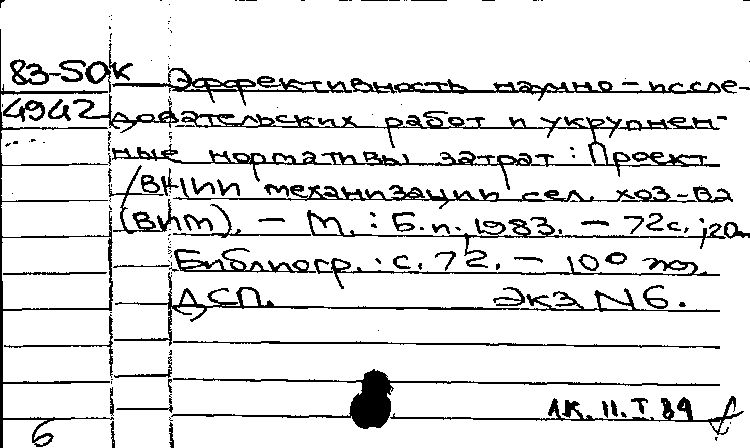 83-50К Эффективность научно-иссле-
4942 довательских работ и укрупнен-
ные нормативы затрат: Проект
/ВНИИ механизации сел. хоз-ва
(ВИМ). — М.: Б.и., 1983. — 72с.; 20см
Библиогр.: с. 72. — 100 экз.
ДСП. Экз N6.
1К. 11. Т. 89
6